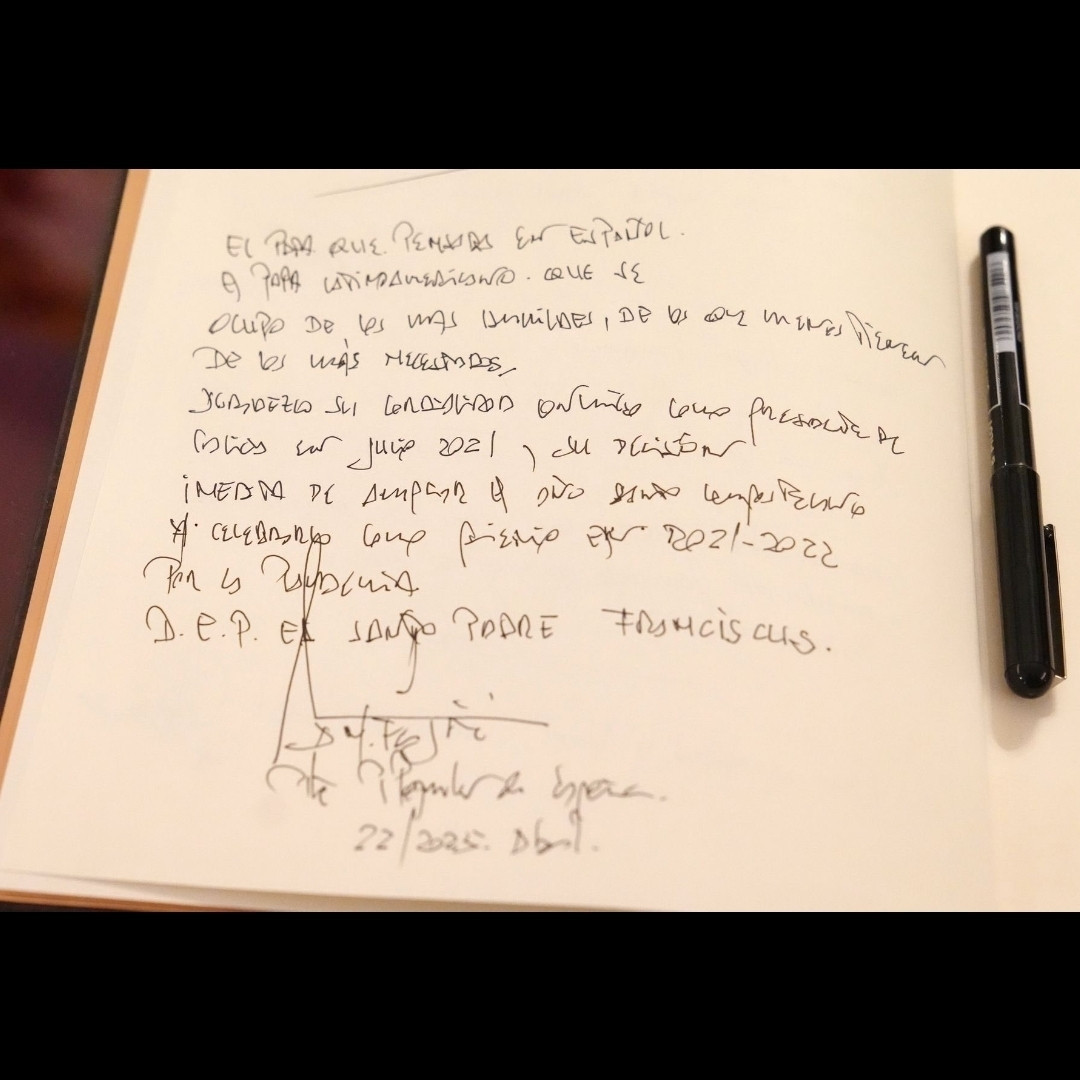 El PAPA QUE PENSABA EN ESPAÑOL.
El PAPA LATINOAMERICANO. QUE SE
OCUPÓ DE LOS MAS HUMILDES, DE LOS QUE MENOS TIENEN
DE LOS MÁS NECESITADOS,
AGRADEZCO SU CORDIALIDAD conmigo como PRESIDENTE DE
GALICIA EN julio 2021, SU DECISIÓN
INEDITA DE AMPLIAR EL AÑO SANTO COMPOSTELANO
Y CELEBRARLO COMO bienio 2021-2022
POR LA PANDEMIA
D.E.P. EL SANTO PADRE FRANCISCUS.
Pte P Popular de España.
22/2025. Abril.